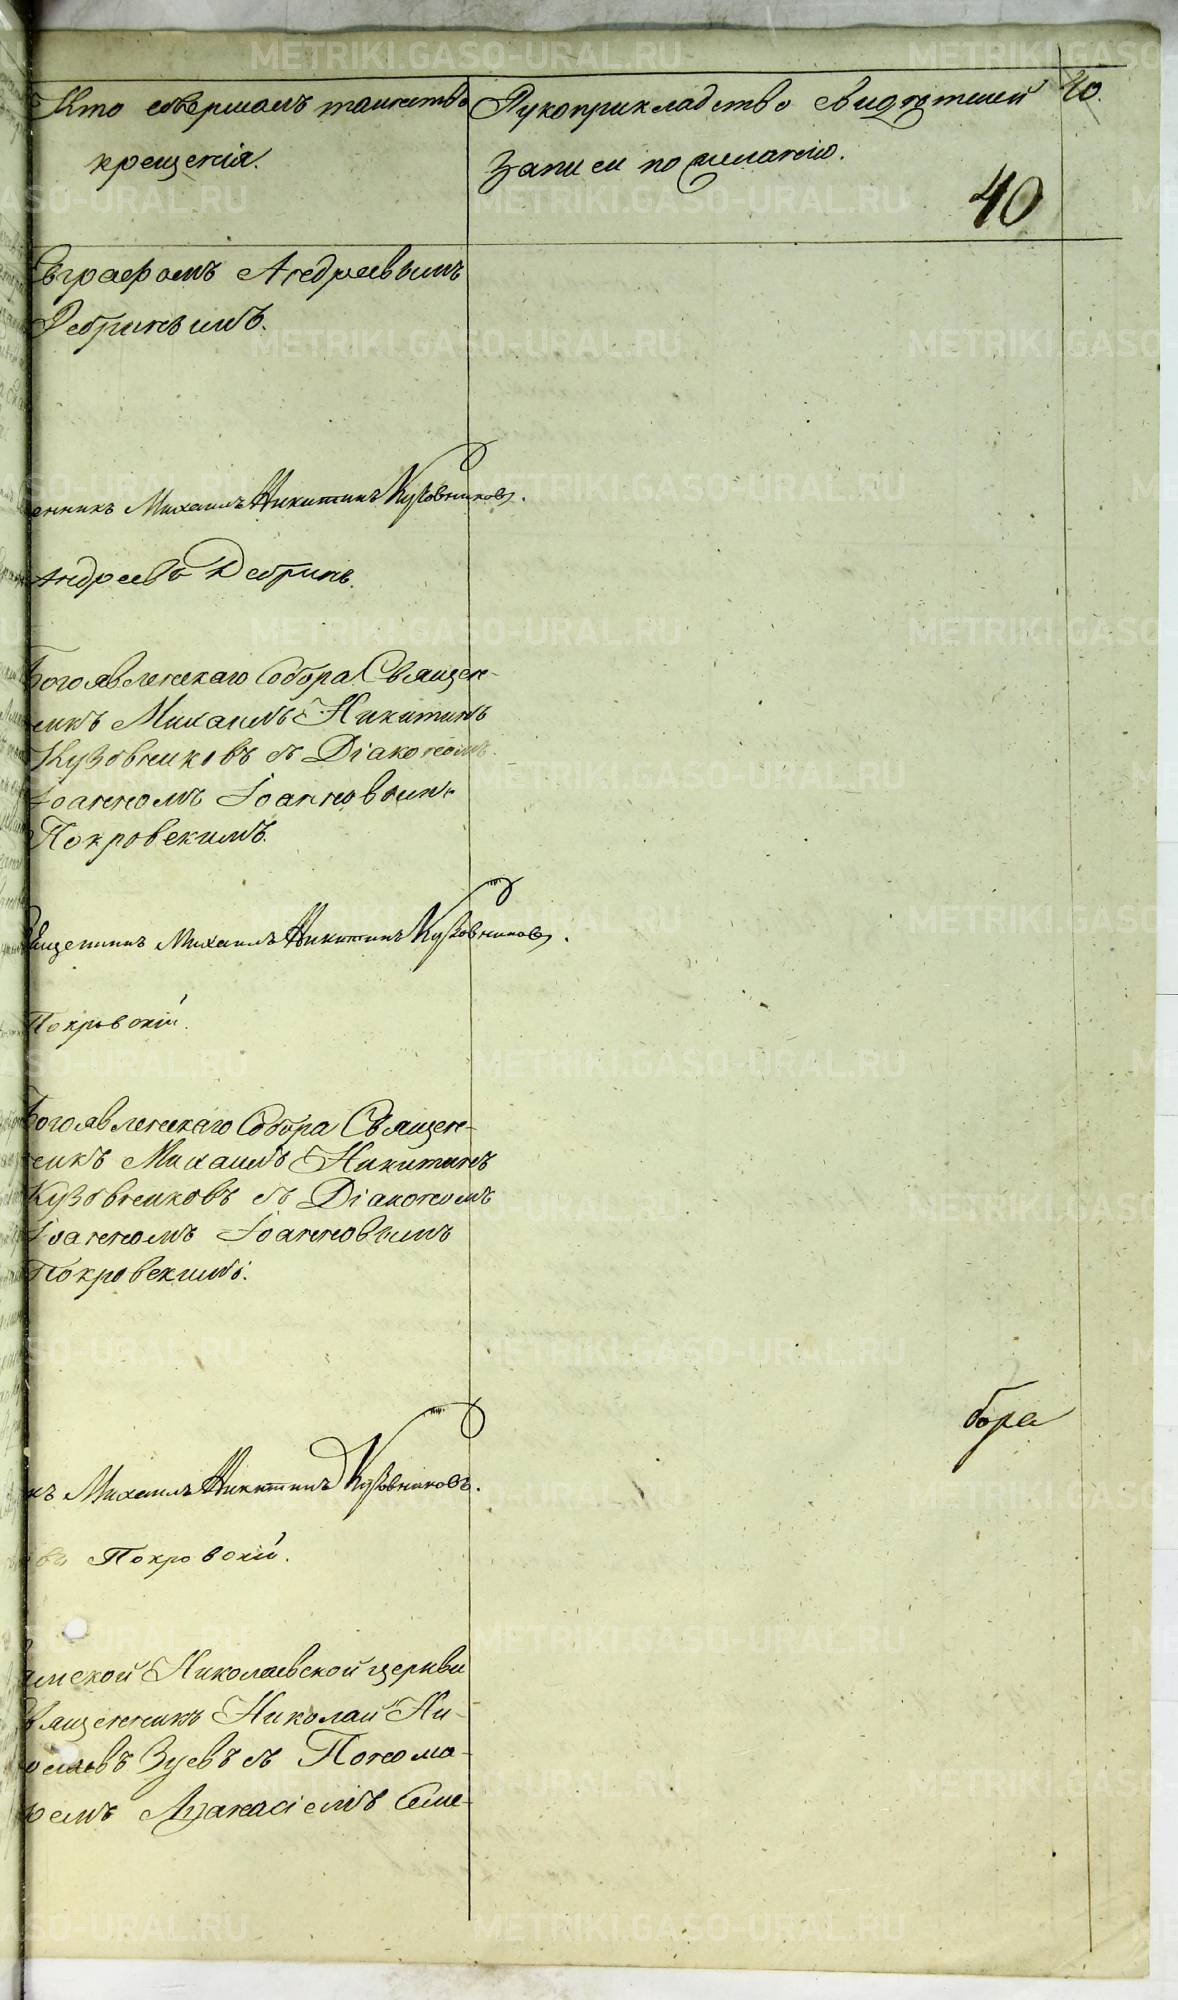 Кто совершалъ таинство
крещенія.
Рукоприкладство свидѣтелей
записи по желанію.
40.
40
Евграфомъ Андреевымъ
Дебринымъ.
енникъ Михаилъ Никитинъ Кузовниковъ.
Андреевъ Дебринъ.
Богоявленскаго Собора Священ-
никъ Михаилъ Никитинъ
Кузовниковъ съ Діакономъ
Іоанномъ Іоанновымъ
Покровскимъ.
Священникъ Михаилъ Никитинъ Кузовниковъ.
Покровскій.
Богоявленскаго Собора Священ-
никъ Михаилъ Никитинъ
Кузовниковъ съ Діакономъ
Іоанномъ Іоанновымъ
Покровскимъ.
бора
къ Михаилъ Никитинъ Кузовниковъ.
въ Покровскій.
Николаевской церкви
Священникъ Николай Ни-
колаевъ Зуевъ съ Понома-
ремъ Аѳанасіемъ Семе-
METRIKI.GASO-URAL.RU